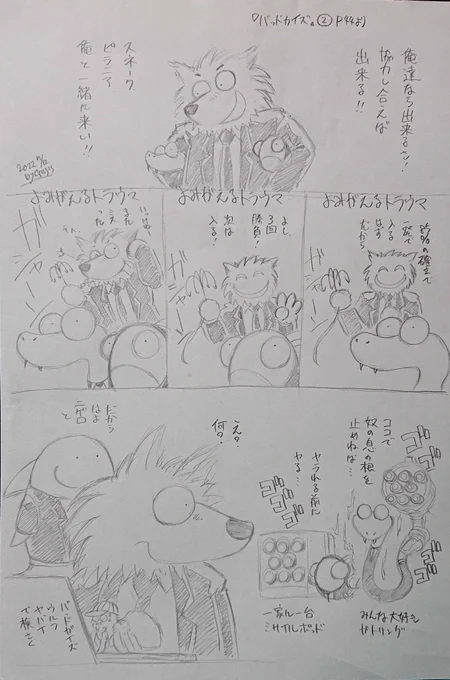 『バッドガイズ』② P44より
俺達なら出来るッ!
協力し合えば
出来る!!
スネーク
ピラニア
俺と一緒に来い!!
よみがえるトラウマ
よみがえるトラウマ
よみがえるトラウマ
確立で
入る
はず
だから
よし
3回
勝負!
次は
入る!
ガシャーン
ガシャーン
ガシャーン
ココで
奴の息の根を
止めねば…
ヤラれる前に
ヤる…
ゴゴゴ
ゴゴゴ
ゴゴゴ
みんな大好き
ガトリング
一家に一台
ミサイルポッド
え?
何?
だから
はよ
ニゲロ
と
バッドガイズ
ウルフ
ヤバイ
で検さく